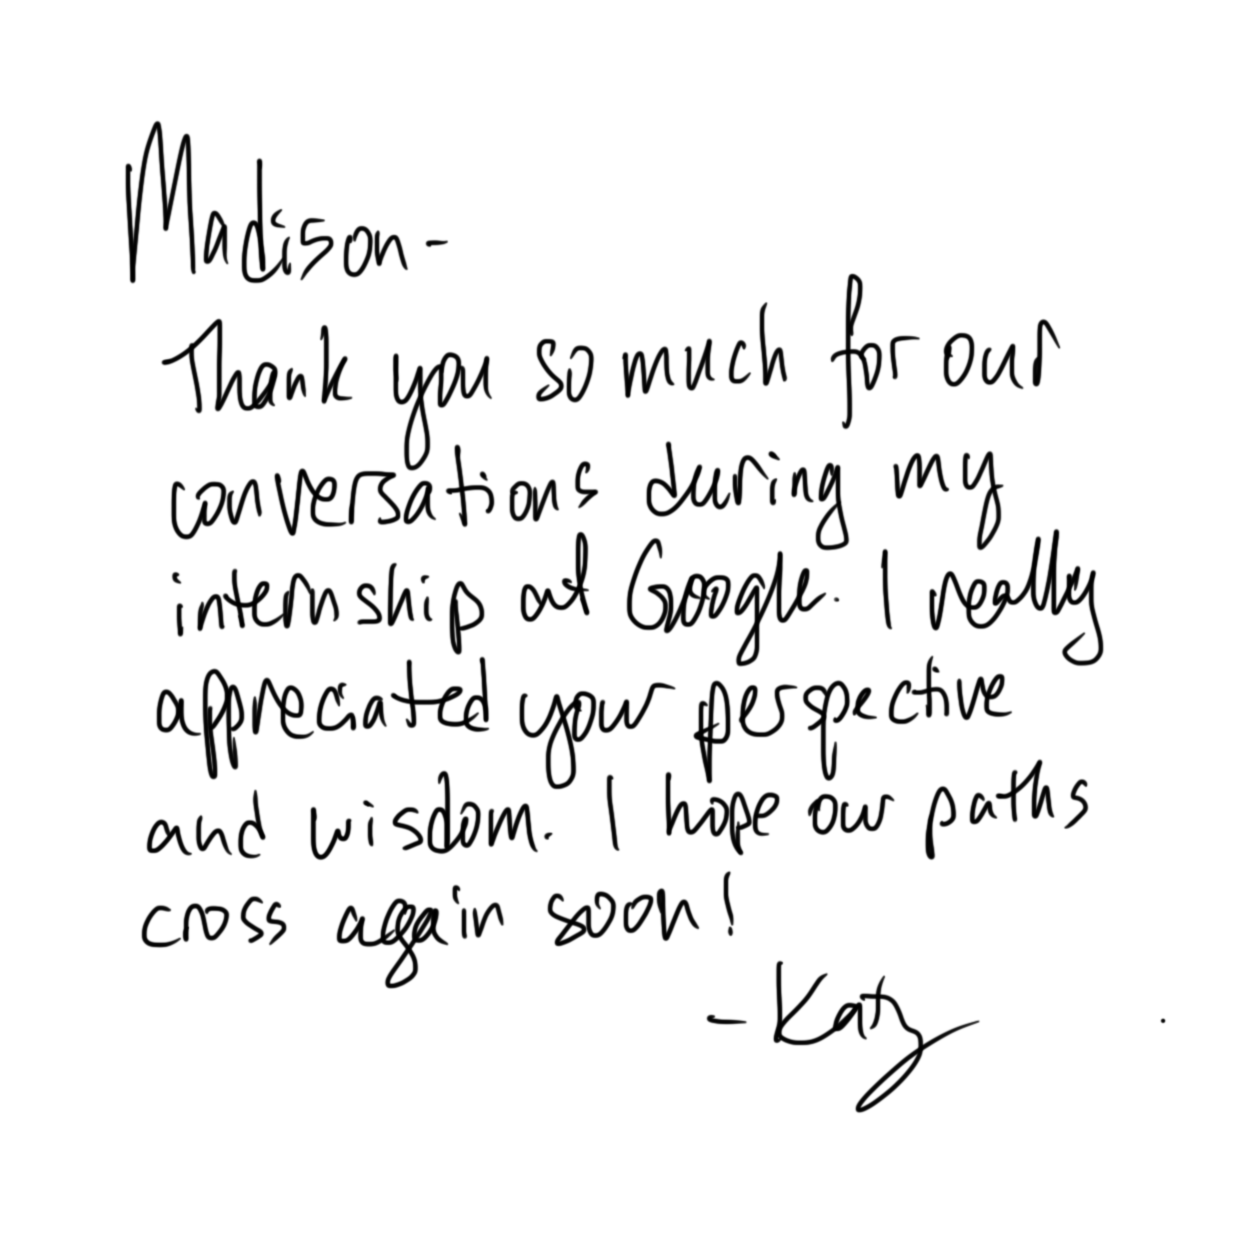 Madison-
Thank you so much for our
conversations during my
internship at Google. I really
appreciated your perspective
and wisdom. I hope our paths
cross again soon!
-Katy